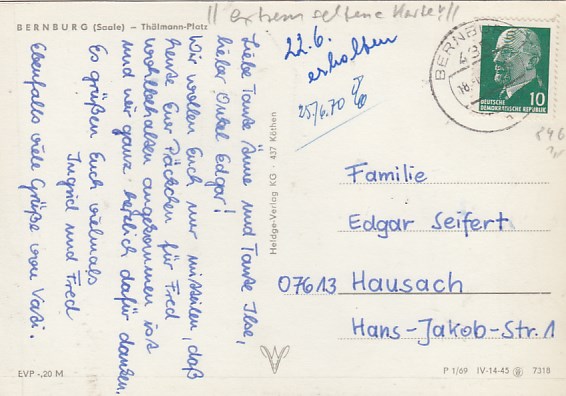 BERNBURG (Saale) — Thälmann-Platz
Liebe Tante Änne und Tante Ilse,
lieber Onkel Edgar!
Wir wollen Euch nur mitteilen, daß
heute Euer Päckchen für Fred
wohlbehalten angekommen ist
und wir ganz herzlich dafür danken.
Es grüßen Euch vielmals
Ingrid und Fred
Ebenfalls viele Grüße von Vati.
EVP -,20 M
Heldge-Verlag KG · 437 Köthen
|| extrem seltene Karte!! ||
22.6.
erhalten
25/6.70
BERNBURG
DEUTSCHE
DEMOKRATISCHE REPUBLIK
10
846
Familie
Edgar Seifert
07613 Hausach
Hans-Jakob-Str. 1
P 1/69 IV-14-45 7318